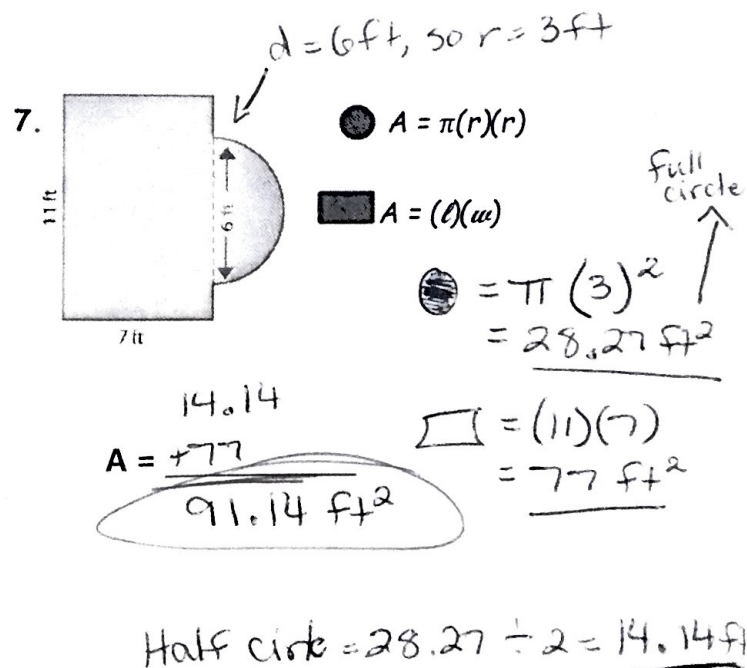 d = 6ft, so r = 3ft
7.
A = π(r)(r)
11 ft
6 ft
7 ft
A = (ℓ)(w)
full
circle
= π (3)²
= 28.27 ft²
= (11)(7)
= 77 ft²
14.14
A = +77
91.14 ft²
Half circle = 28.27 ÷ 2 = 14.14 ft